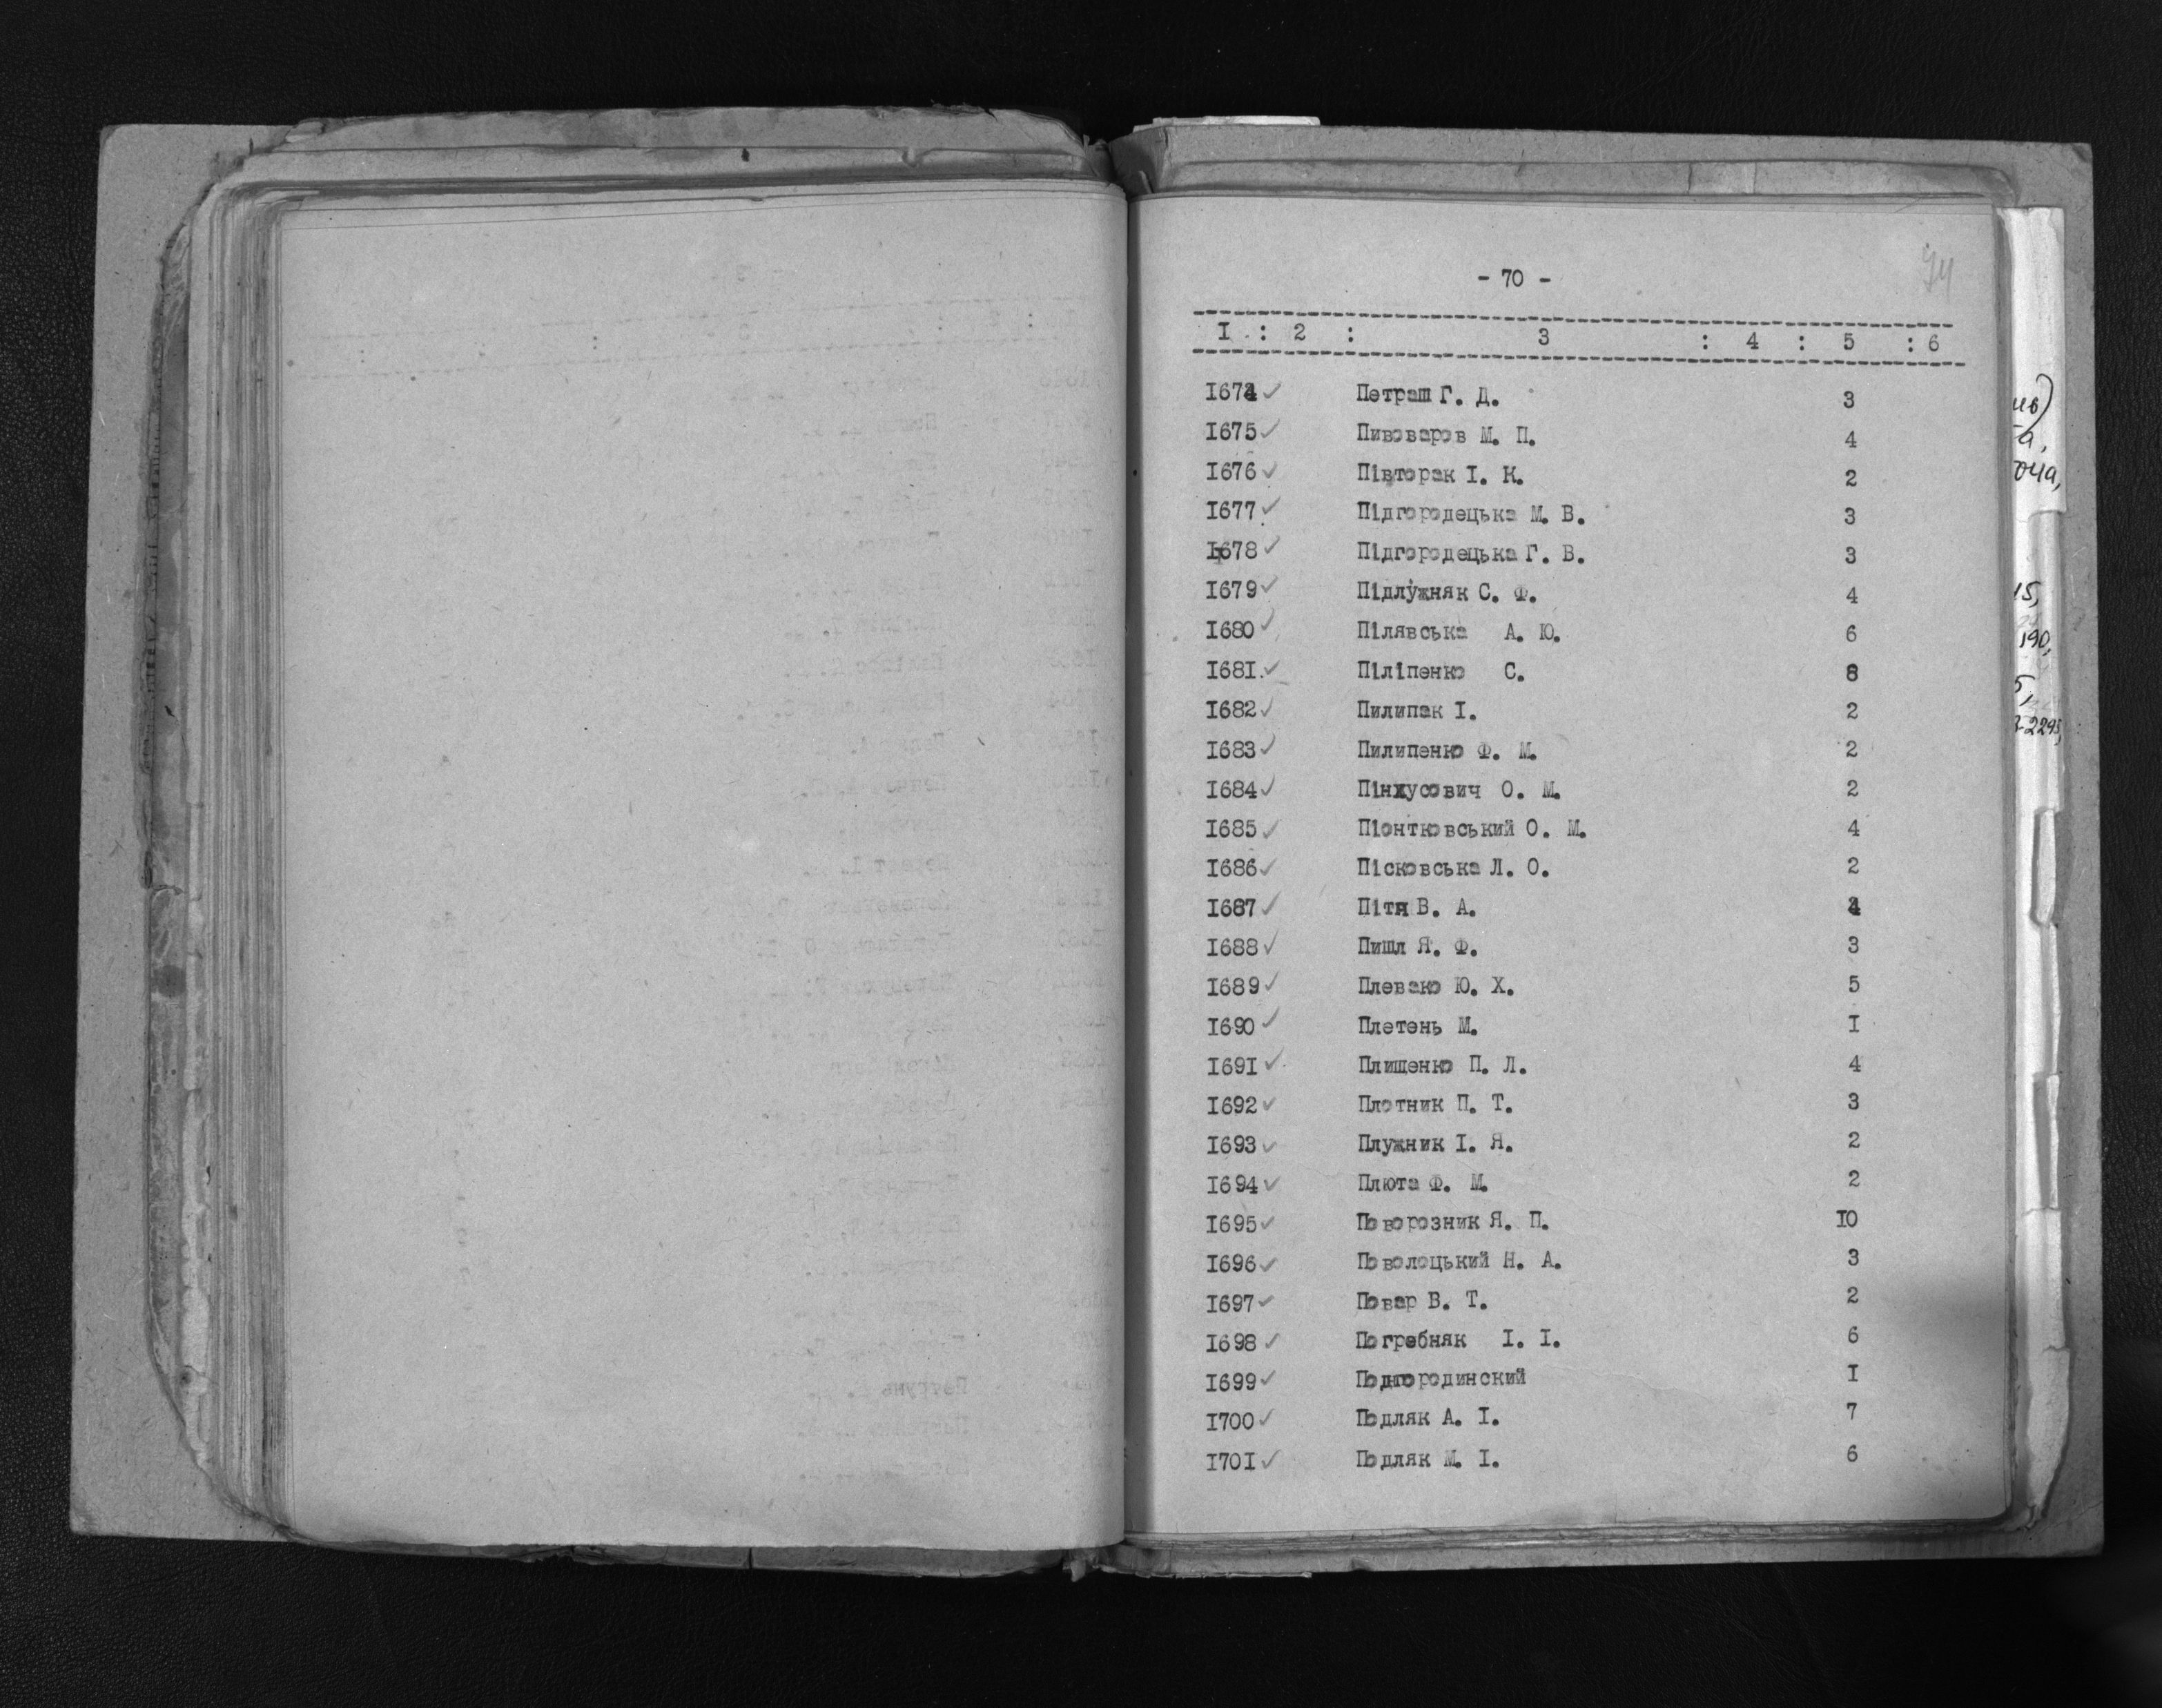 - 70 -
I : 2 : 3 : 4 : 5 : 6
I674 ✓ Петраш Г. Д. 3
I675 ✓ Пивоваров М. П. 4
I676 ✓ Півторак І. К. 2
I677 ✓ Підгородецька М. В. 3
I678 ✓ Підгородецька Г. В. 3
I679 ✓ Підлужняк С. Ф. 4
I680 ✓ Пілявська А. Ю. 6
I68I. ✓ Піліпенко С. 8
I682 ✓ Пилипак І. 2
I683 ✓ Пилипенко Ф. М. 2
I684 ✓ Пінхусович О. М. 2
I685 ✓ Піонтковський О. М. 4
I686 ✓ Пісковська Л. О. 2
I687 ✓ Пітя В. А.
I688 ✓ Пишл Я. Ф. 3
I689 ✓ Плевако Ю. Х. 5
I690 ✓ Плетень М. I
I69I ✓ Плищенко П. Л. 4
I692 ✓ Плотник П. Т. 3
I693 ✓ Плужник І. Я. 2
I694 ✓ Плюта Ф. М. 2
I695 ✓ Поворозник Я. П. I0
I696 ✓ Поволоцький Н. А. 3
I697 ✓ Повар В. Т. 2
I698 ✓ Погребняк І. І. 6
I699 ✓ Подгородинский I
I700 ✓ Подляк А. І. 7
I70I ✓ Подляк М. І. 6
190,